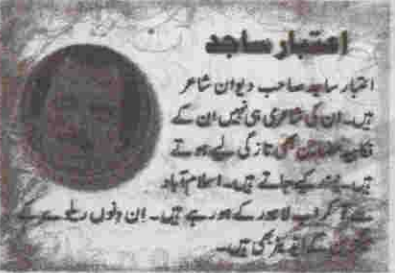 اعتبار ساجد
اعتبار ساجد صاحب دیوان شاعر
ہیں۔ ان کی شاعری ہی نہیں ان کے
فکاہیہ مضامین بھی تازگی لیے ہوتے
ہیں۔ پسند کیے جاتے ہیں۔ اسلام آباد
سے آ کر اب لاہور کے ہو رہے ہیں۔ ان دنوں ریلوے کے
کے ایڈیٹر بھی ہیں۔